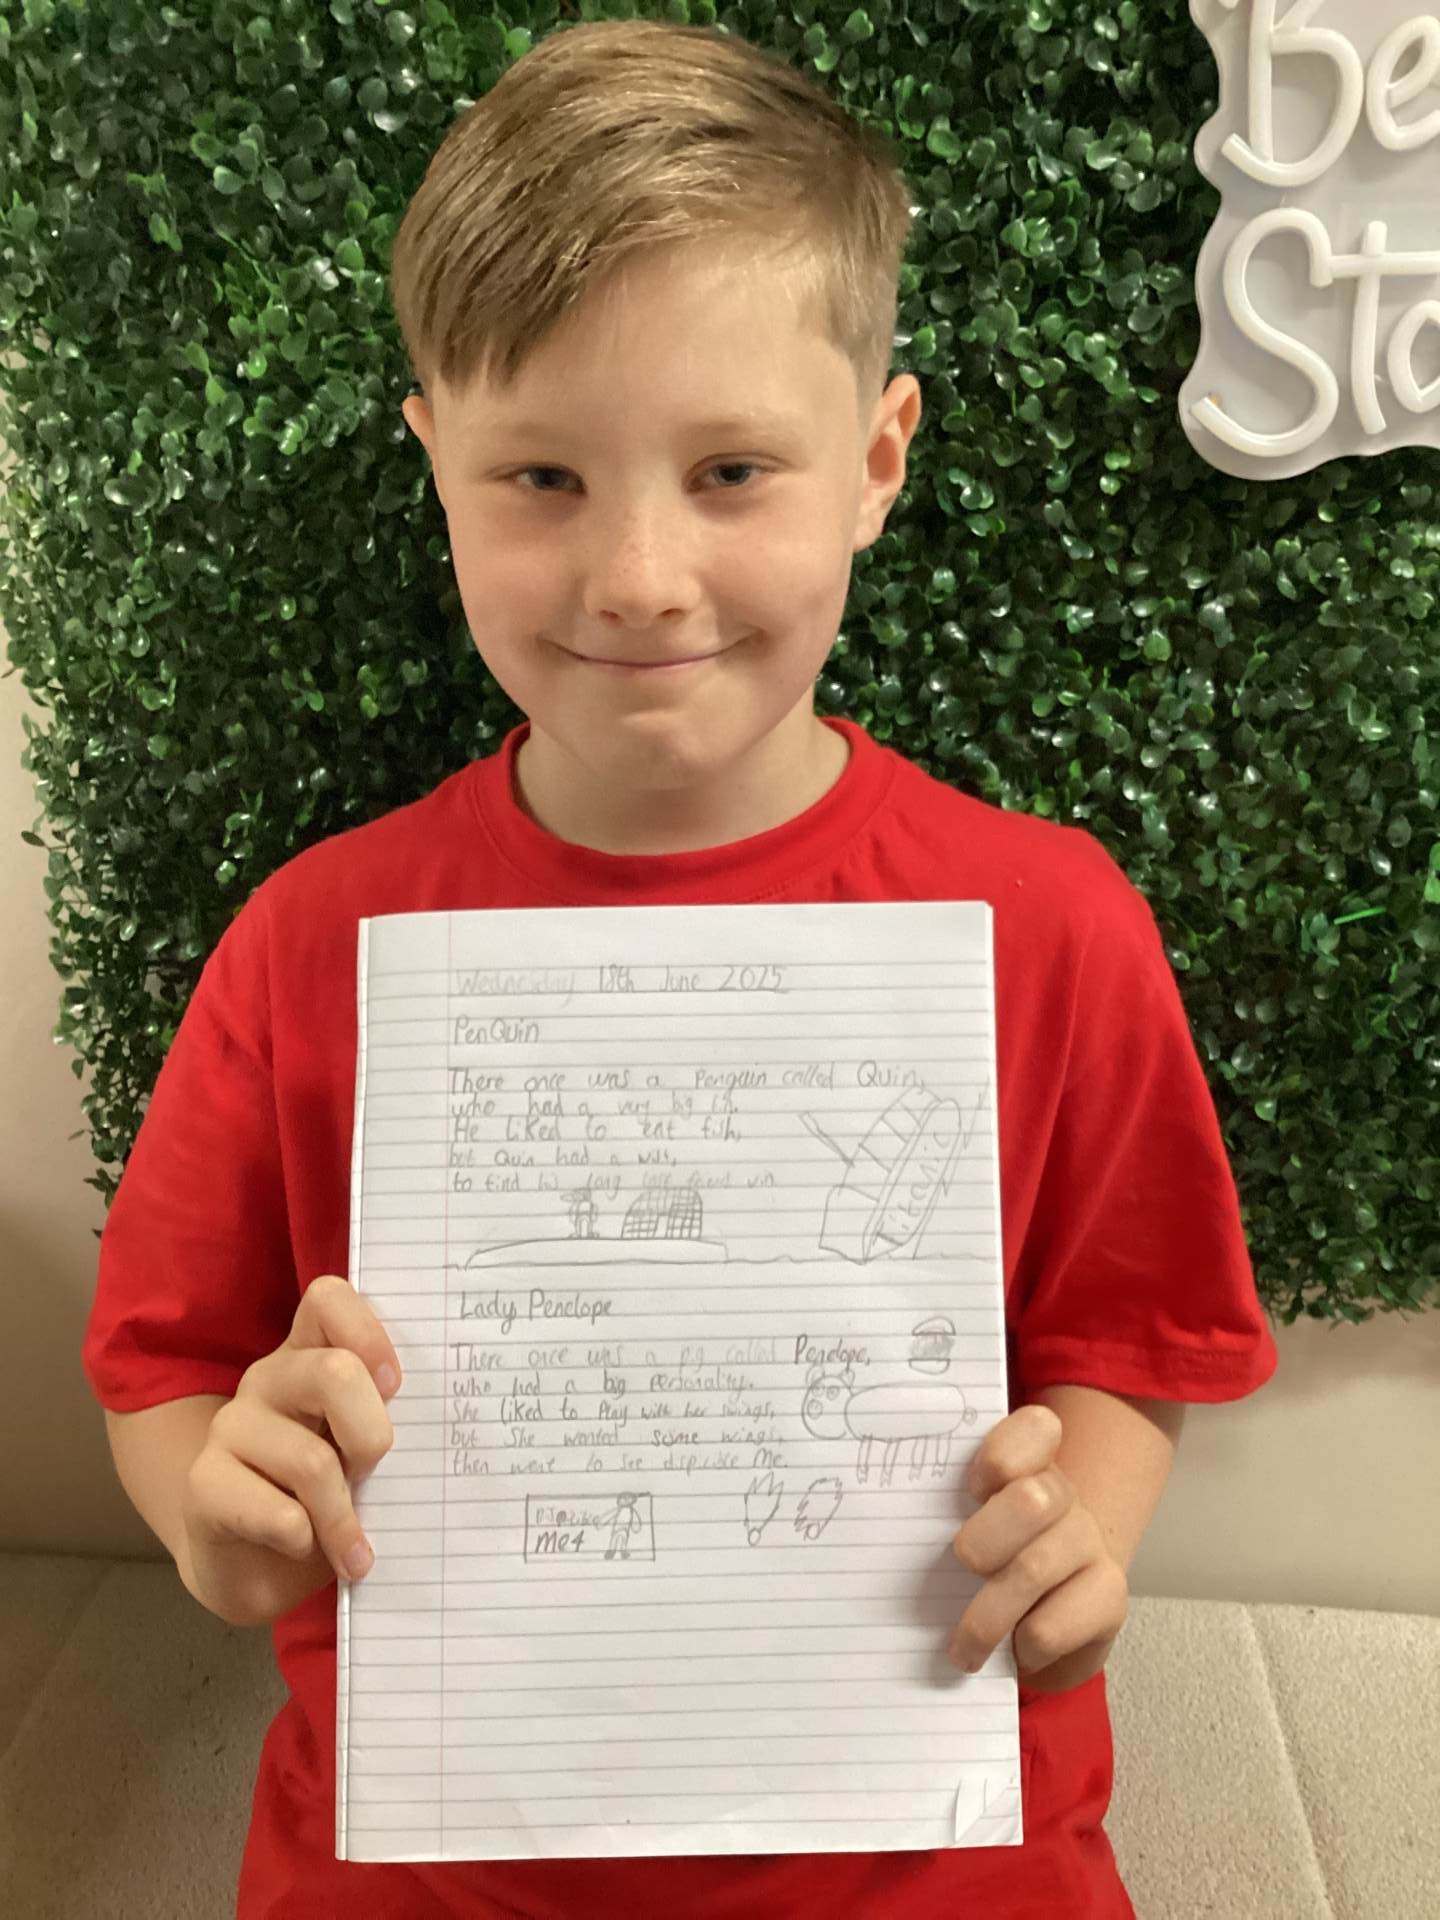 Be
Sta
Wednesday 18th June 2025
PenQuin
There once was a Penguin called Quin,
who had a very big
He Liked to eat fish,
but Quin had a wish,
to find his long lost friend vin
Titanic
Lady Penelope
There once was a pig called Penelope,
who had a big personality.
She liked to Play with her swings,
but She wanted some wings,
then went to see me.
Me4